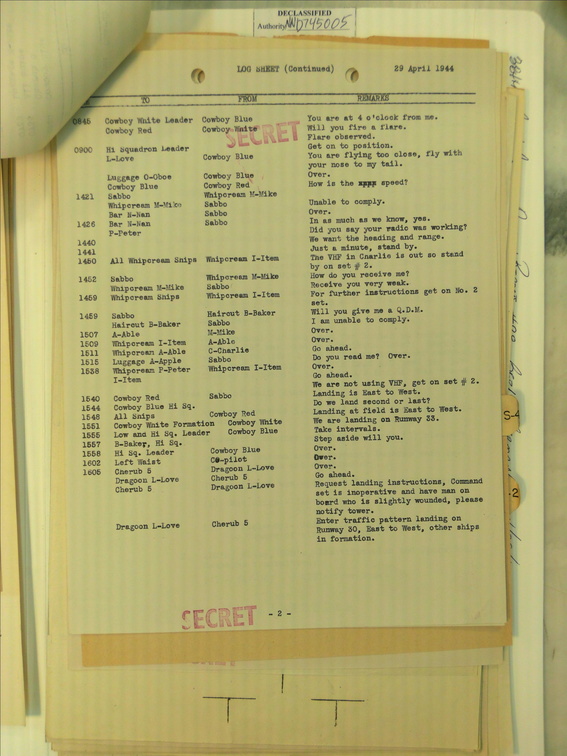 DECLASSIFIED
Authority NND745005
LOG SHEET (Continued) 29 April 1944
TO FROM REMARKS
0845 Cowboy White Leader Cowboy Blue You are at 4 o'clock from me.
Cowboy Red Cowboy White Will you fire a flare.
SECRET
Flare observed.
0900 Hi Squadron Leader Get on to position.
L-Love Cowboy Blue You are flying too close, fly with
your nose to my tail.
Luggage O-Oboe Cowboy Blue Over.
Cowboy Blue Cowboy Red How is the xxxx speed?
1421 Sabbo Whipcream M-Mike
Whipcream M-Mike Sabbo Unable to comply.
Bar N-Nan Sabbo Over.
1426 Bar N-Nan Sabbo In as much as we know, yes.
P-Peter Did you say your radio was working?
1440 We want the heading and range.
1441 Just a minute, stand by.
1450 All Whipcream Snips Whipcream I-Item The VHF in Cnarlie is out so stand
by on set # 2.
1452 Sabbo Whipcream M-Mike How do you receive me?
Whipcream M-Mike Sabbo Receive you very weak.
1459 Whipcream Snips Whipcream I-Item For further instructions get on No. 2
set.
1459 Sabbo Haircut B-Baker Will you give me a Q.D.M.
Haircut B-Baker Sabbo I am unable to comply.
1507 A-Able M-Mike Over.
1509 Whipcream I-Item A-Able Over.
1511 Whipcream A-Able C-Cnarlie Go ahead.
1515 Luggage A-Apple Sabbo Do you read me? Over.
1538 Whipcream P-Peter Whipcream I-Item Over.
I-Item Go ahead.
We are not using VHF, get on set # 2.
1540 Cowboy Red Sabbo Landing is East to West.
1544 Cowboy Blue Hi Sq. Do we land second or last?
1548 All Snips Cowboy Red Landing at field is East to West.
1551 Cowboy White Formation Cowboy White We are landing on Runway 33.
1555 Low and Hi Sq. Leader Cowboy Blue Take intervals.
1557 B-Baker, Hi Sq. Step aside will you.
1558 Hi Sq. Leader Cowboy Blue Over.
1602 Left Waist Co-pilot Over.
1605 Cherub 5 Dragoon L-Love Over.
Dragoon L-Love Cherub 5 Go ahead.
Cherub 5 Dragoon L-Love Request landing instructions, Command
set is inoperative and have man on
board who is slightly wounded, please
notify tower.
Dragoon L-Love Cherub 5 Enter traffic pattern landing on
Runway 30, East to West, other ships
in formation.
SECRET - 2 -